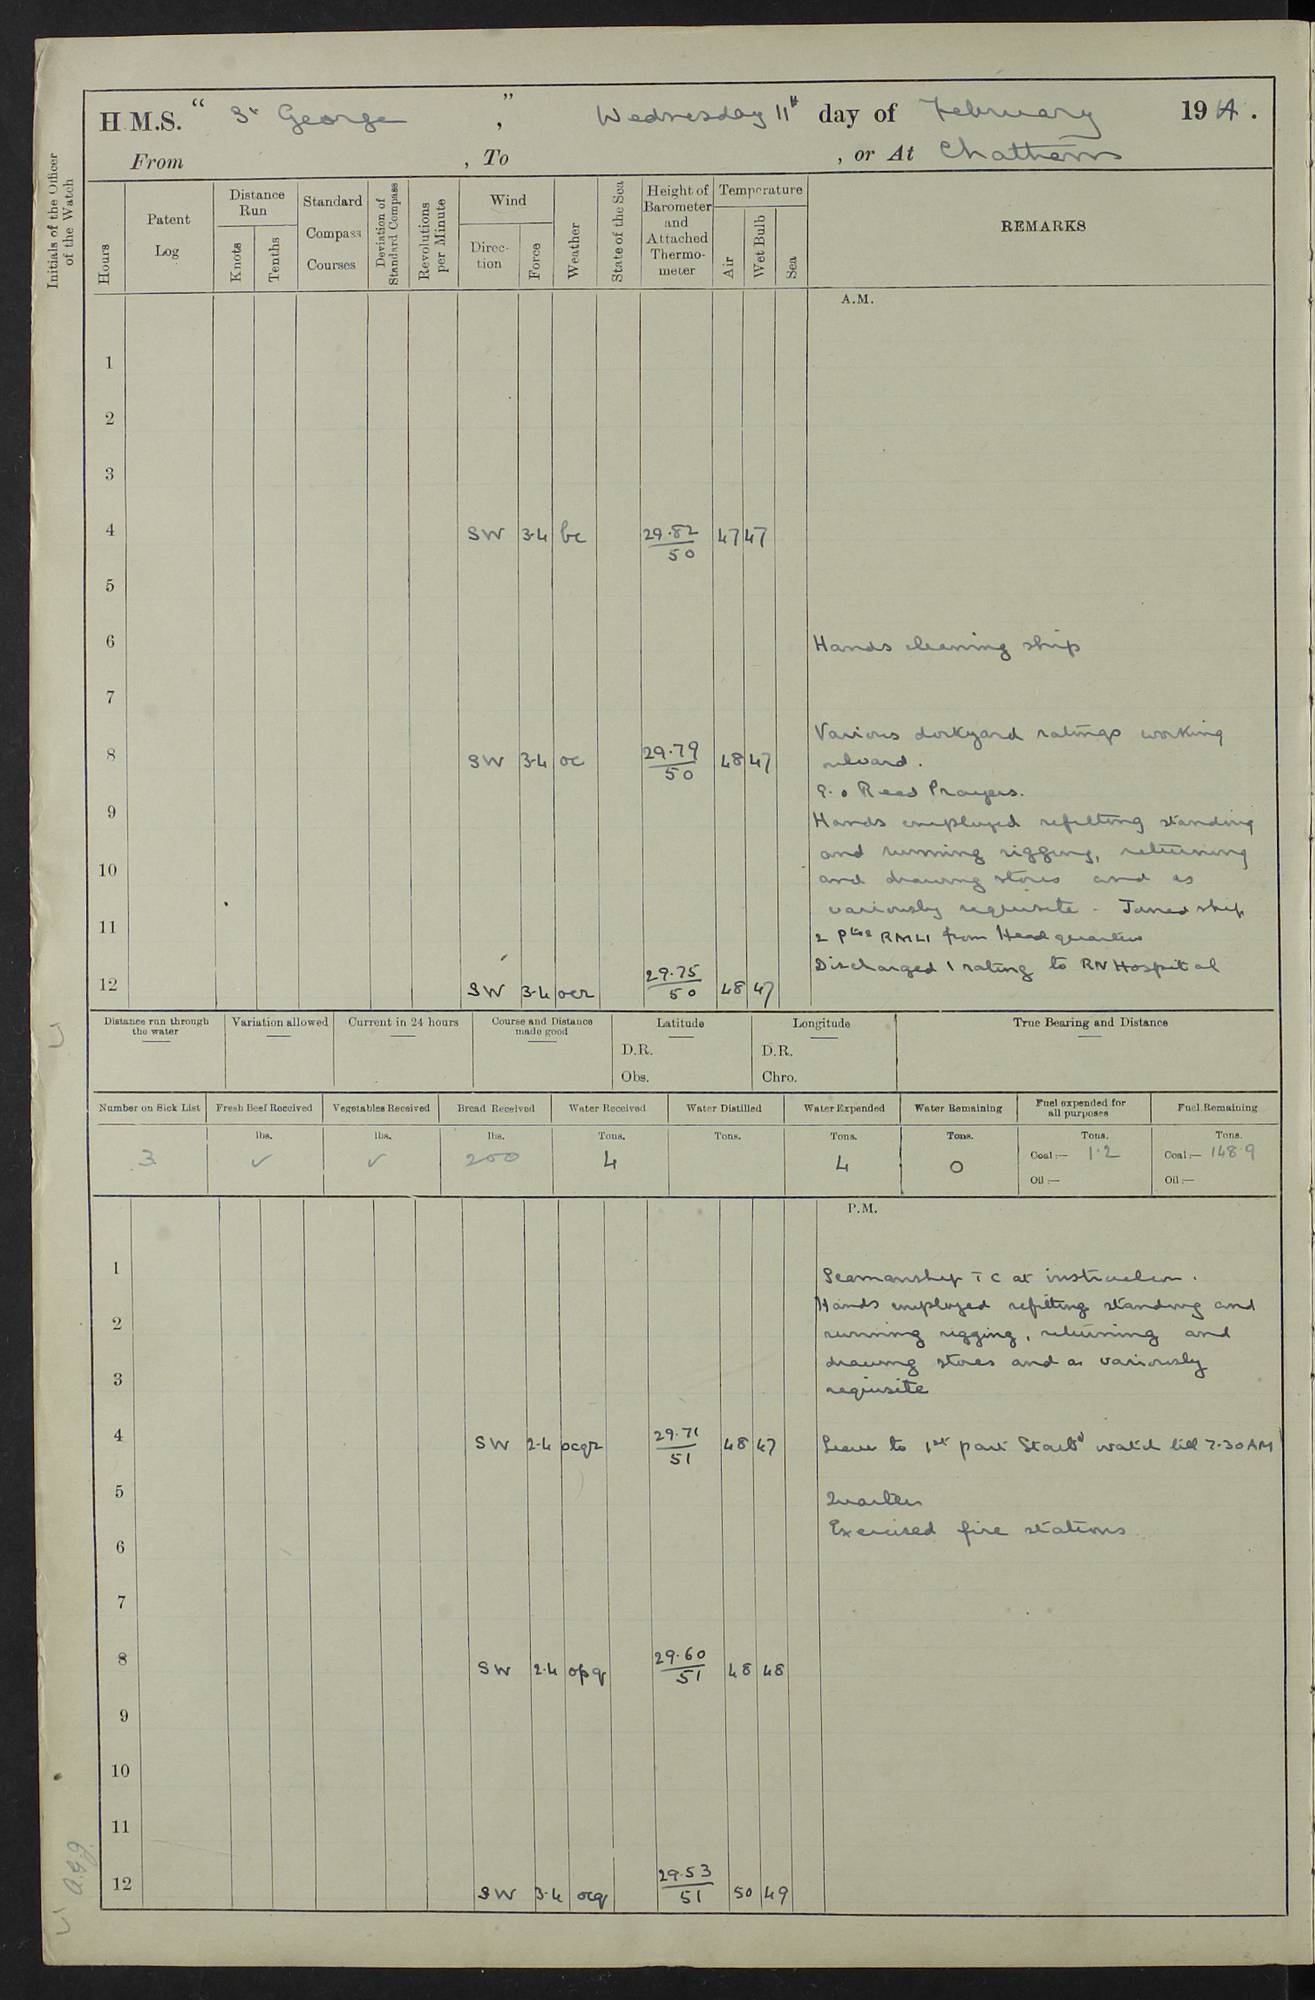 H.M.S. "St George", Wednesday 11th day of February 1914.
From , To , or At Chatham
Initials of the Officer of the Watch
Hours
Patent Log
Distance Run
Knots
Tenths
Standard Compass Courses
Deviation of Standard Compass
Revolutions per Minute
Wind
Direction
Force
Weather
State of the Sea
Height of Barometer and Attached Thermometer
Temperature
Air
Wet Bulb
Sea
REMARKS
A.M.
1
2
3
4 SW 3·4 bc 29·82 50 47 47
5
6 Hands cleaning ship
7
Various dockyard ratings working
8 SW 3·4 oc 29·79 50 48 47
onboard.
9.0 Read Prayers.
9 Hands employed refitting standing
and running rigging, returning
10 and drawing stores and as
variously requisite - Joined ship
11 2 Ptes RMLI from Headquarters
Discharged 1 rating to RN Hospital
12 SW 3·4 ocr 29·75 50 48 47
Distance run through the water
Variation allowed
Current in 24 hours
Course and Distance made good
Latitude
D.R.
Obs.
Longitude
D.R.
Chro.
True Bearing and Distance
Number on Sick List
3
Fresh Beef Received
lbs.
✓
Vegetables Received
lbs.
✓
Bread Received
lbs.
200
Water Received
Tons.
4
Water Distilled
Tons.
Water Expended
Tons.
4
Water Remaining
Tons.
0
Fuel expended for all purposes
Tons.
Coal:— 1·2
Oil:—
Fuel Remaining
Tons.
Coal:— 148·9
Oil:—
P.M.
1 Seamanship TC at instruction.
Hands employed refitting standing and
2 running rigging, returning and
drawing stores and as variously
3 requisite
4 SW 2·4 ocqr 29·71 51 48 47 Leave to 1st part Starbd watch till 7·30 AM
5 Quarters
Exercised fire stations
6
7
8 SW 2·4 opq 29·60 51 48 48
9
10
11
12 SW 3·4 ocq 29·53 51 50 49